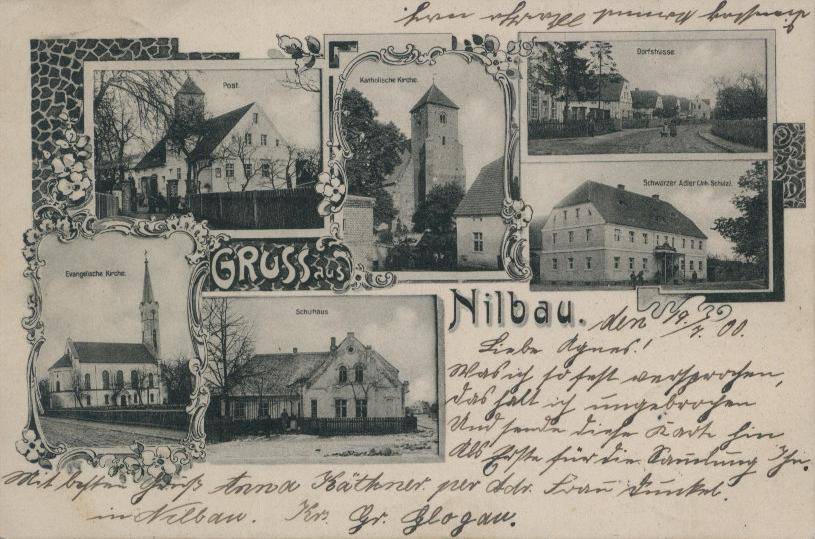 Post.
Katholische Kirche.
Dorfstrasse
Schwarzer Adler (Inh. Schulz).
Evangelische Kirche.
GRUSS aus
Schulhaus
Nilbau.
den 19/7 00.
Liebe Agnes!
Was ich so fest versprochen,
das halt ich ungebrochen
Und sende diese Karte hin
Als Erste für die Samlung Ihn.
Mit besten Gruß Anna Käthner. per Adr. Frau Dunkel.
in Nilbau. Kr. Gr. Glogau.